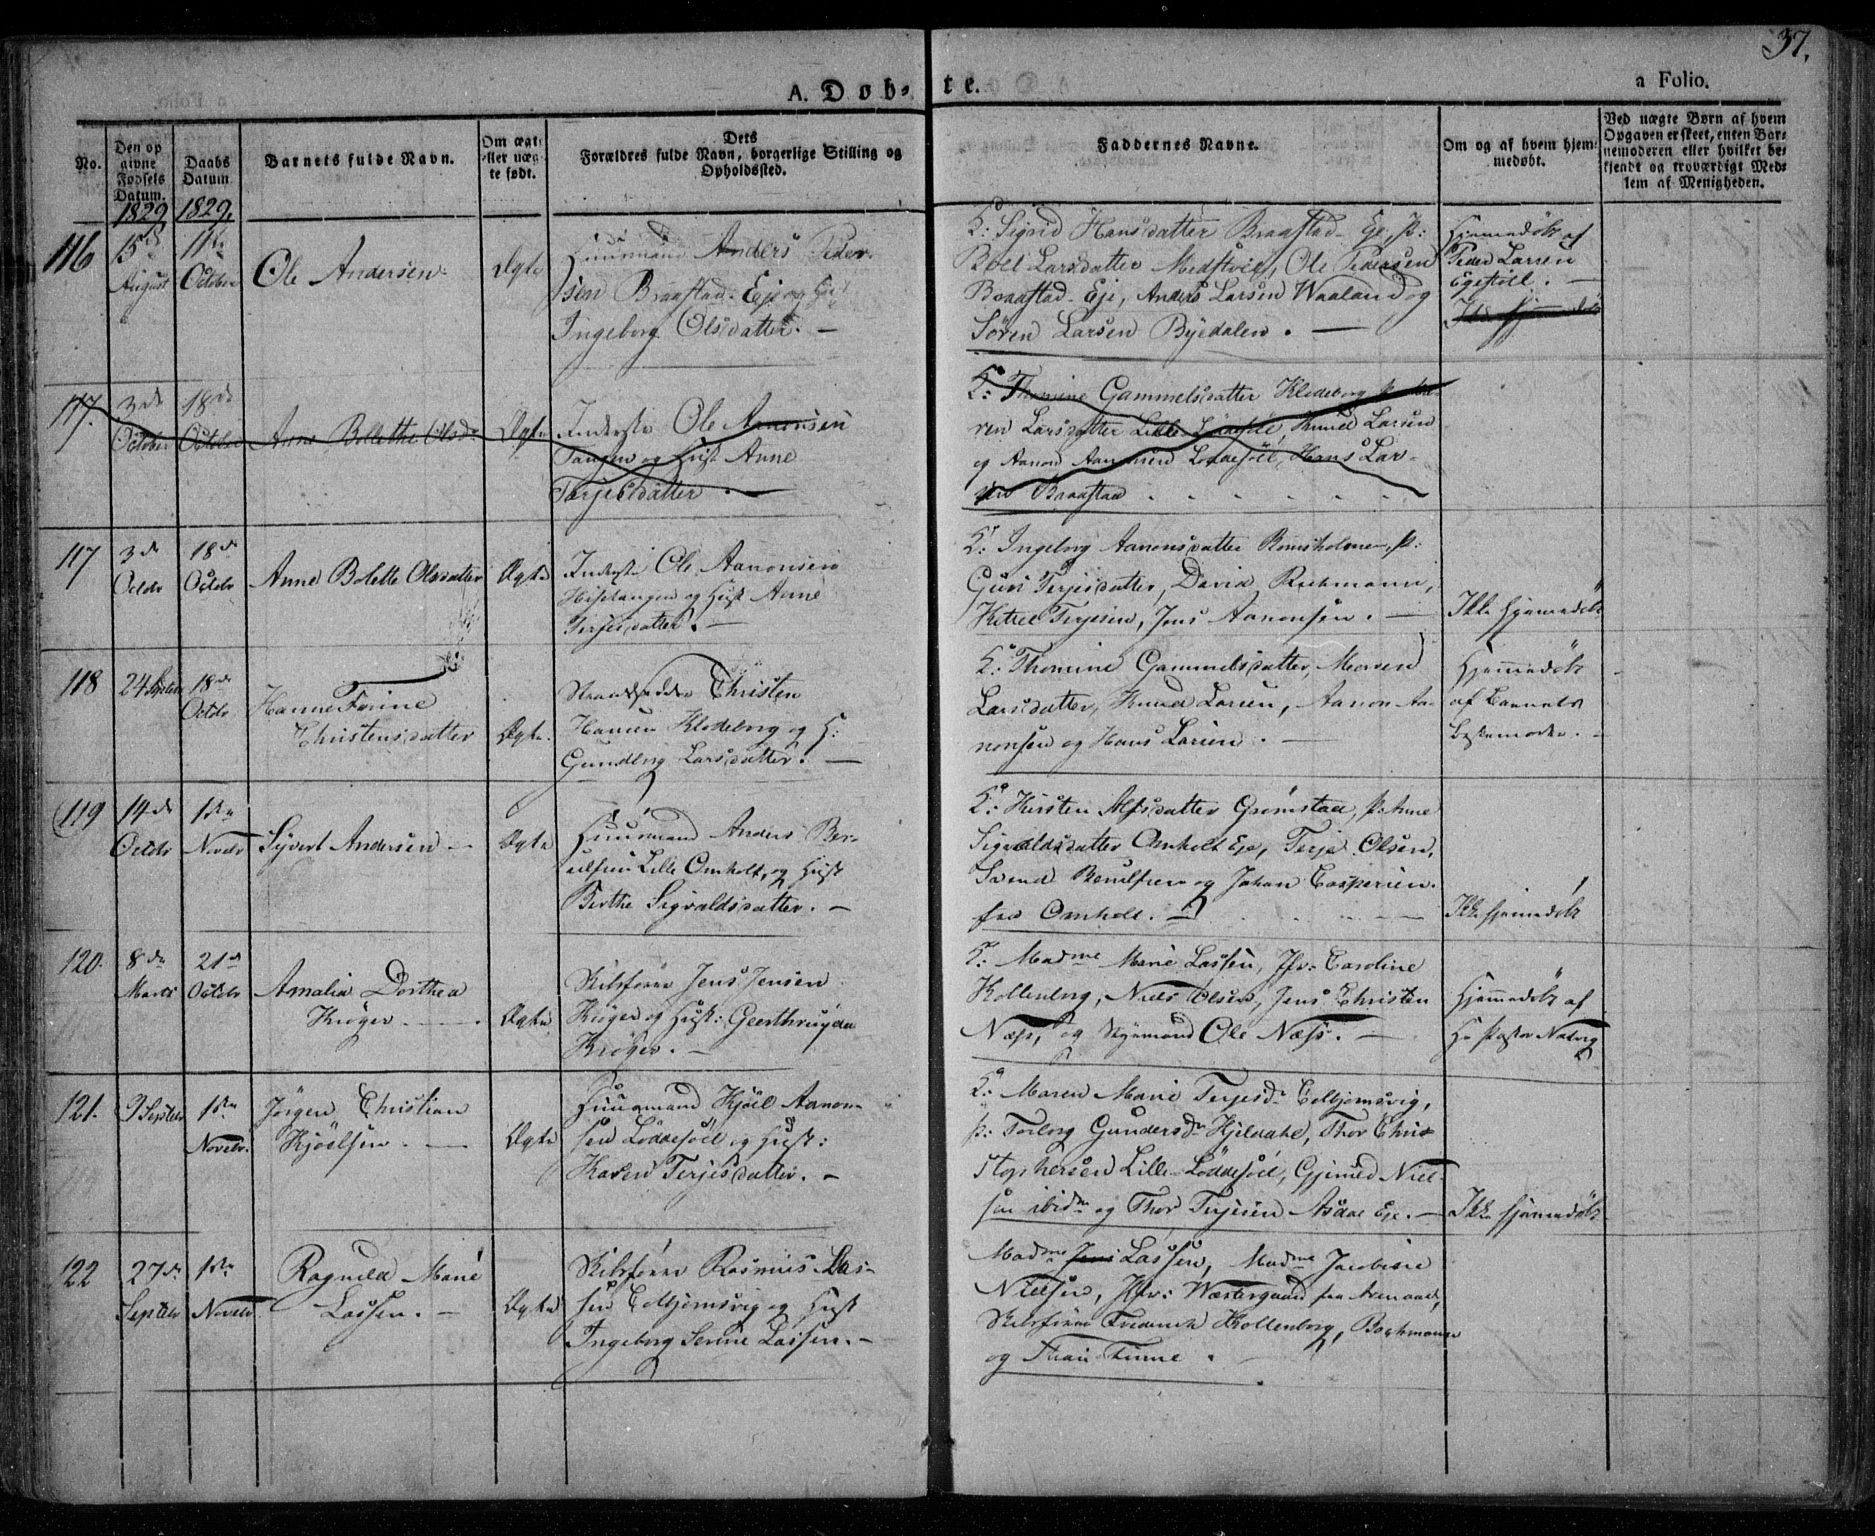 37.
A. Døbte.
a Folio.
No.
Den opgivne Fødsels Datum. 1829
Daabs Datum 1829.
Barnets fulde Navn.
Om ægte eller uægte født.
Dets Forældres fulde Navn, borgerlige Stilling og Opholdssted.
Faddernes Navne.
Om og af hvem hjemmedøbt.
Ved uægte Børn af hvem Opgaven er skeet, enten Barnemoderen eller hvilket bekjendt og troværdigt Medlem af Menigheden.
116
15de August
11te October
Ole Andersen
Ægte
Huusmand Anders Peder-
sen Braastad Eje og
Ingeborg Olsdatter. —
K: Sigrid Hansdatter Braastad Eje, P:
Boel Larsdatter Medstvig, Ole Pedersen
Braastad Eje, Anders Larsen Waaland og
Søren Larsen Byedalen. —
Hjemmedøbt af
Peder Larsen
Egestøl. —
117.
3de October
18de October
Anne Bolette Olsdr
Ægte
Inderste Ole Aanonsen
Tangen og Hust Anne
Terjesdatter. —
K: Thomine Gammelsdatter Klodeborg P: Ma-
ren Larsdatter Lille Løddesøl, Knud Larsen
og Aanon Aanonsen Løddesøl, Hans Lar-
sen Braastad
117
3de Octbr
18de Octbr
Anne Bolette Olsdatter
Ægte
Inderste Ole Aanonsen
Hisetangen og Hust Anne
Terjesdatter. —
K: Ingeborg Aanonsdatter Romsholmen, P:
Guri Terjesdatter, David Richmann,
Kittel Terjesen, Jens Aanonsen. —
Ikke hjemmedøbt
118
24 Septbr
18de Octbr
Hanne Torine
Christensdatter
Ægte.
Strandsidder Christen
Hansen Klodeborg og H:
Gundborg Larsdatter. —
K: Thomine Gammelsdatter, Maren
Larsdatter, Knud Larsen, Aanon Aa-
nonsen og Hans Larsen. —
Hjemmedøbt
af Barnets
Bestemoder. —
119
14de Octbr
1ste Novbr
Syvert Andersen —
Ægte
Huusmand Anders Ber-
ulfsen Lille Omholt, og Hust
Berthe Sigvaldsdatter. —
K: Kirsten Alfsdatter Grømstad, P: Anne
Sigvaldsdatter Omholt Eje, Terje Olsen,
Berulfsen og Johan Caspersen
fra Omholt. —
Ikke hjemmedøbt
120.
8de Marts
21de Octbr
Amalia Dorthea
Krøger. —
Ægte
Skibsfører Jens Jensen
Krøger og Hust: Geerthruyda
Krøger. —
K: Madme Marie Lassen, Jfr: Caroline
Kollenborg, Niels Olsen, Jens Christen
Næss, og Styrmand Ole Næss. —
Hjemmedøbt af
Hr Pastor Natvig
121.
9 Septbr
1ste Novbr.
Jørgen Christian
Kjøelsen. —
Ægte
Huusmand Kjøel Aanon-
sen Løddesøel og Hust:
Karen Terjesdatter. —
K: Maren Marie Terjesdr Colbjørnsvig,
P: Torborg Gundersdr Hjeldahl, Thor Chri-
stophersen Lille Løddesøel, Gjmund Niel-
sen ibidm og Thor Terjesen Asdal Eje. —
Ikke hjemmedøbt
122
27de Septbr
1ste Novbr
Ragnild Marie
Lassen. —
Ægte
Skibsfører Rasmus Las-
sen Colbjørnsvig og Hust
Ingeborg Serine Lassen. —
Madme Lassen, Madme Jacobine
Nielsen, Jfr: Westergaard fra Arendal,
Skibsfører Frederik Kollenborg, Bochmann
og Finne.